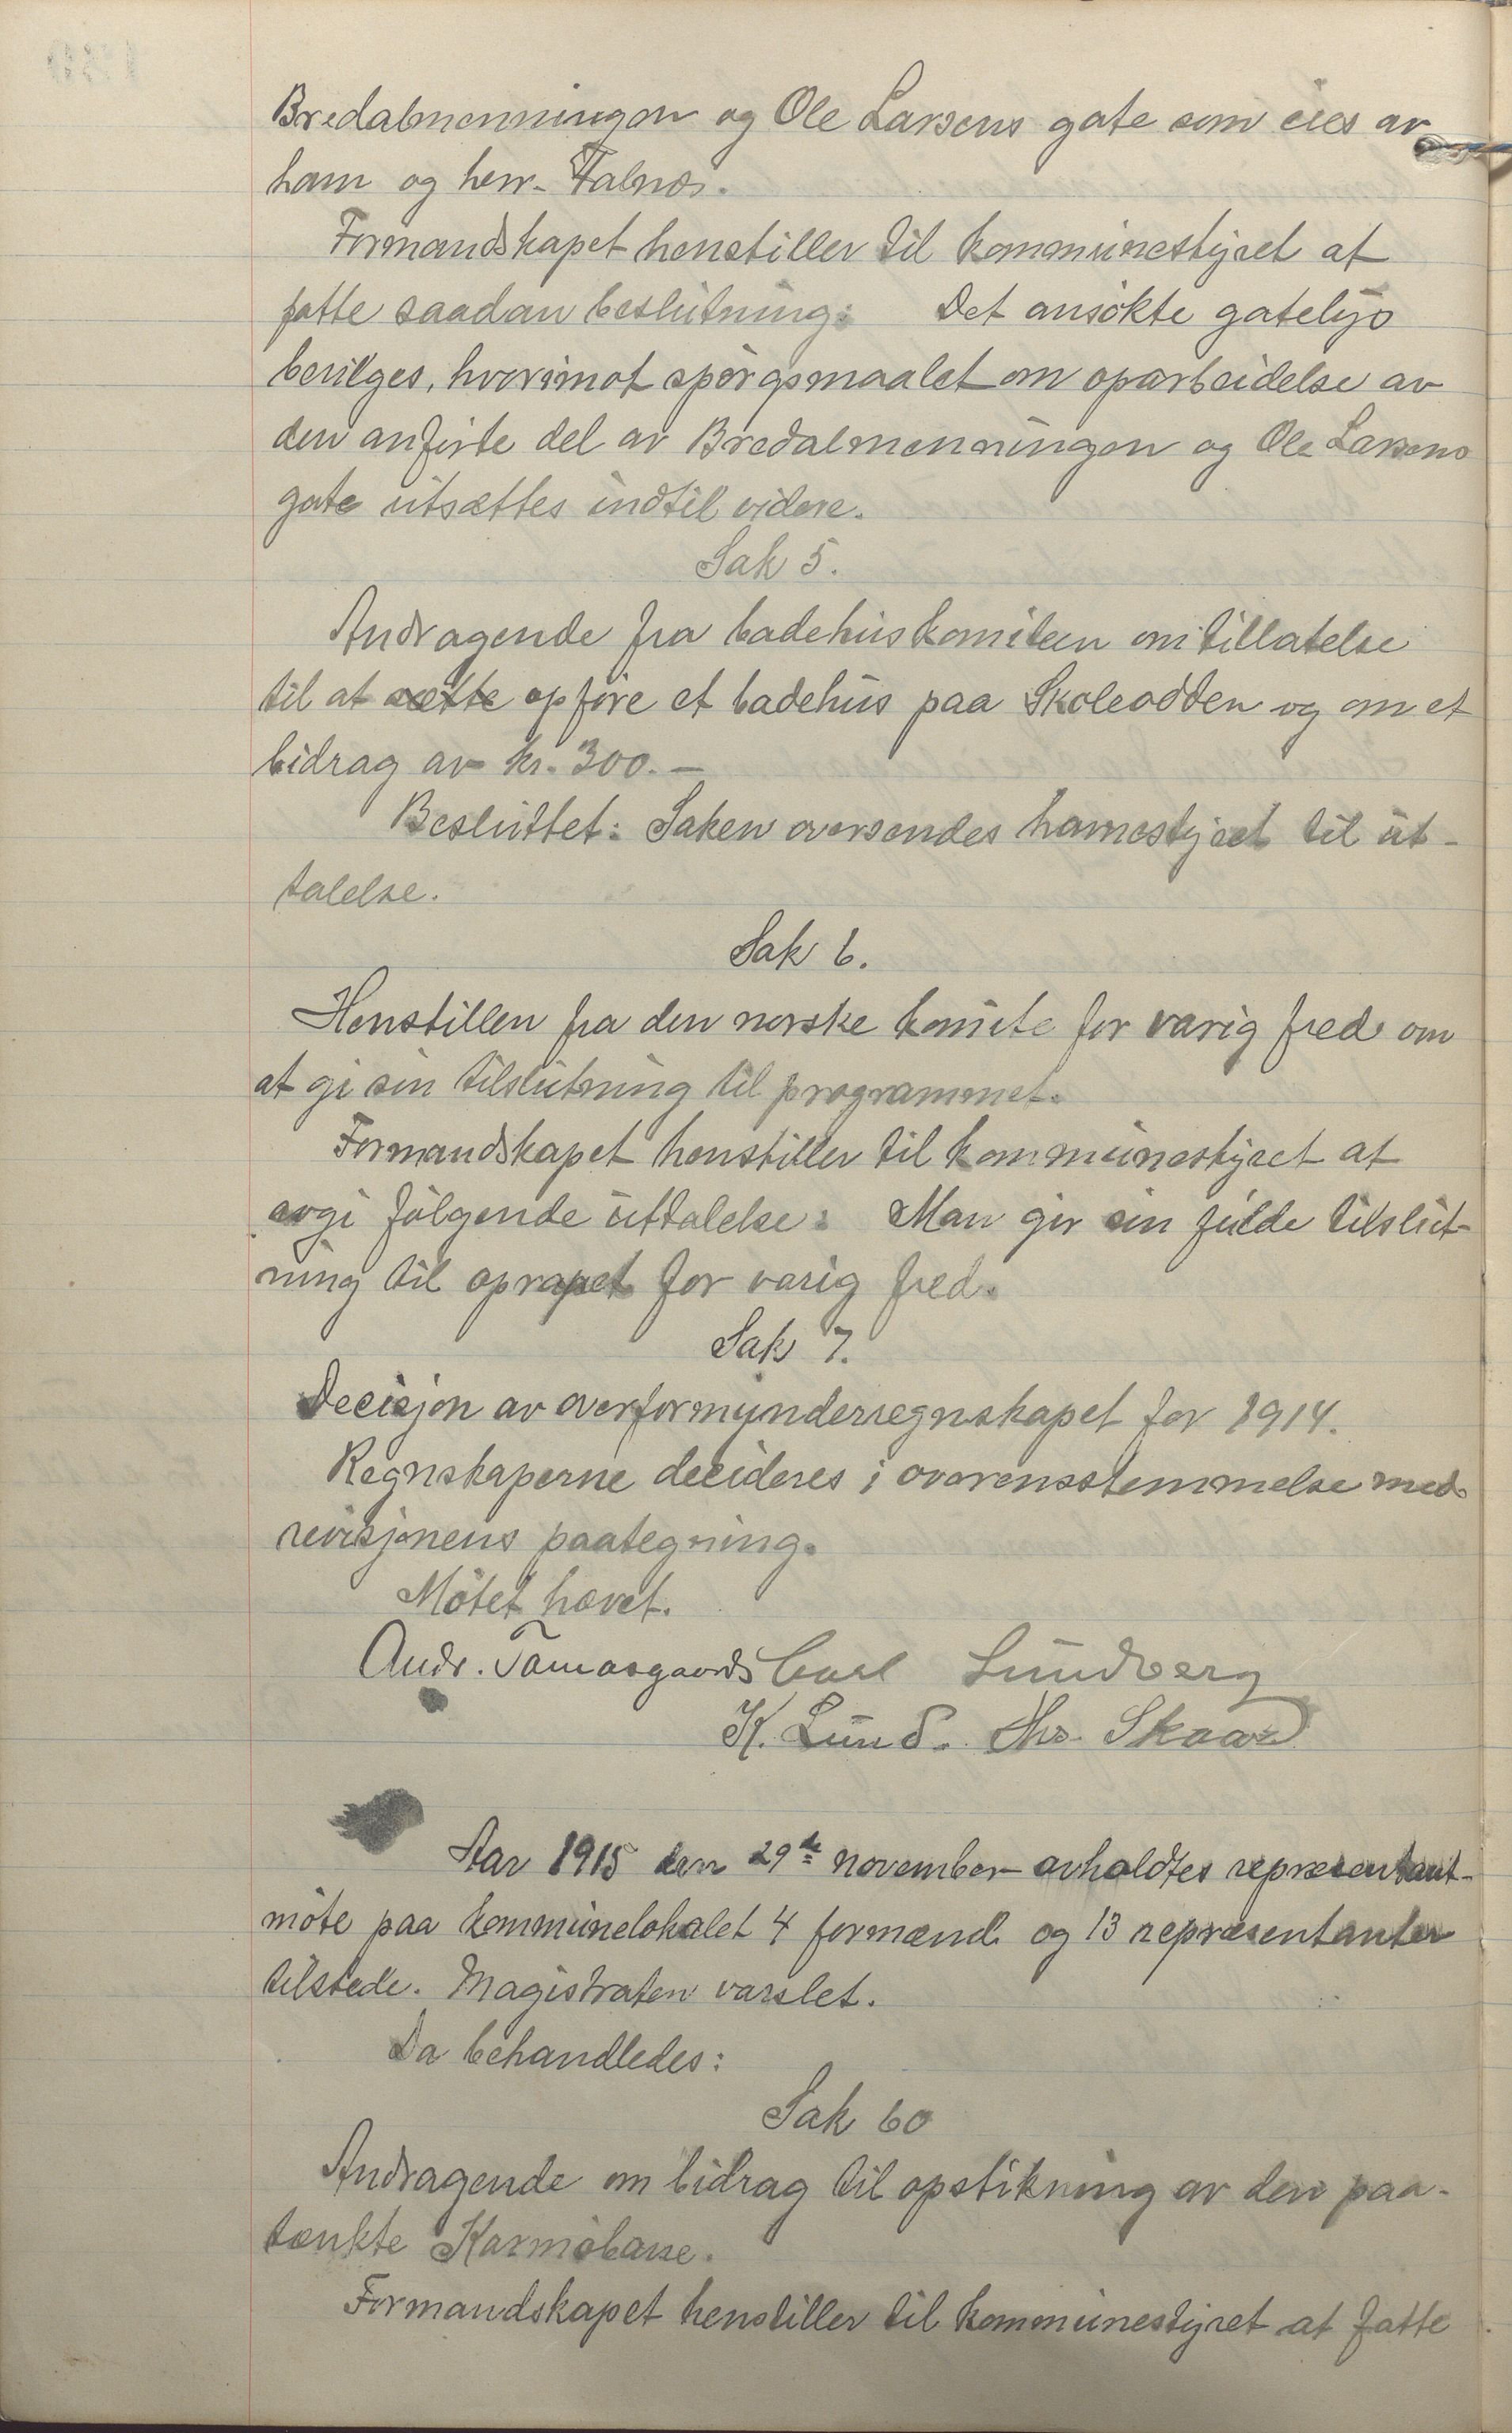 Bredalmenningen og Ole Larsens gate som eies av
ham og herr. Falnæs.
Formandskapet henstiller til kommunestyret at
fatte saadan beslutning: Det ansøkte gatelys
bevilges, hvorimot spørgsmaalet om oparbeidelse av
den anførte del av Bredalmenningen og Ole Larsens
gate utsættes indtil videre.
Sak 5.
Andragende fra badehuskomiteen om tillatelse
til at sætte opføre et badehus paa Skoleodden og om et
bidrag av kr. 300.—
Besluttet: Saken oversendes havnestyret til ut-
talelse.
Sak 6.
Henstillen fra den norske komite for varig fred om
at gi sin tilslutning til programmet.
Formandskapet henstiller til kommunestyret at
avgi følgende uttalelse: Man gir sin fulde tilslut-
ning til opropet for varig fred.
Sak 7.
Decisjon av overformynderregnskapet for 1914.
Regnskaperne decideres i overensstemmelse med
revisjonens paategning.
Møtet hævet.
Andr. Tamasgaard Carl Lundberg
K. Lund. Ths. Skaar
Aar 1915 den 29de november avholdtes representant-
møte paa kommunelokalet 4 formænd og 13 repræsentanter
tilstede. Magistraten varslet.
Da behandledes:
Sak 60
Andragende om bidrag til opstikning av den paa-
tænkte Karmøbane.
Formandskapet henstiller til kommunestyret at fatte